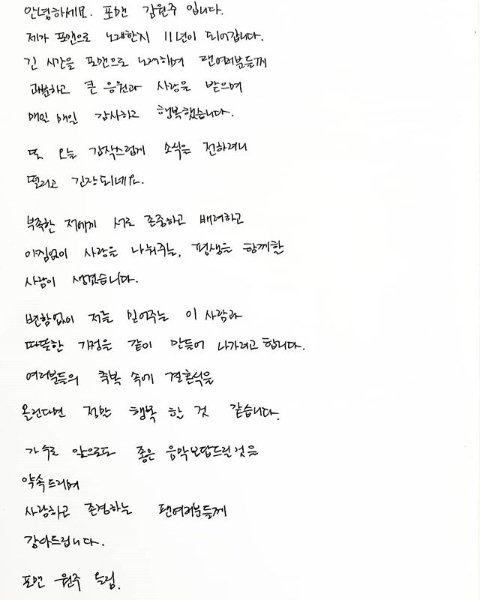 안녕하세요. 포맨 김원주 입니다.
제가 포맨으로 노래한지 11년이 되어갑니다.
긴 시간을 포맨으로 노래하며 팬여러분들께
과분하고 큰 응원과 사랑을 받으며
매일 매일 감사하고 행복했습니다.
또 오늘 갑작스럽게 소식을 전하려니
떨리고 긴장되네요.
부족한 저에게 서로 존중하고 배려하고
아낌없이 사랑을 나눠주는, 평생을 함께할
사람이 생겼습니다.
변함없이 저를 믿어주는 이 사람과
따뜻한 가정을 같이 만들어 나가려고 합니다.
여러분들의 축복 속에 결혼식을
올린다면 정말 행복 할 것 같습니다.
가수로 앞으로도 좋은 음악 보답드릴것을
약속드리며
사랑하고 존경하는 팬여러분들께
감사드립니다.
포맨 원주 올림.